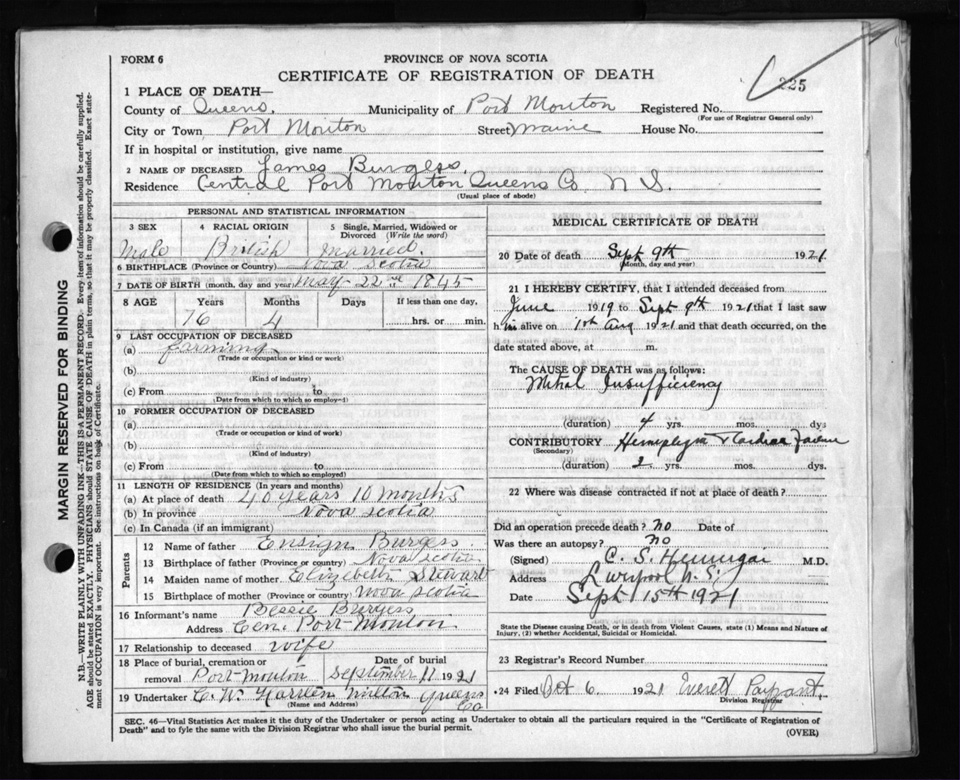 FORM 6
PROVINCE OF NOVA SCOTIA
CERTIFICATE OF REGISTRATION OF DEATH
225
1 PLACE OF DEATH—
County of Queens. Municipality of Port Mouton Registered No.
(For use of Registrar General only)
City or Town Port Mouton Street Maine House No.
If in hospital or institution, give name
2 NAME OF DECEASED James Burgess.
Residence Central Port Mouton Queens Co. N S.
(Usual place of abode)
PERSONAL AND STATISTICAL INFORMATION
3 SEX 4 RACIAL ORIGIN 5 Single, Married, Widowed or Divorced (Write the word)
Male British Married.
6 BIRTHPLACE (Province or Country) Nova Scotia
7 DATE OF BIRTH (month, day and year) May 22nd 1845
8 AGE Years Months Days If less than one day,
76 4 hrs. or min.
9 LAST OCCUPATION OF DECEASED
(a) farming
(Trade or occupation or kind or work)
(b)
(Kind of industry)
(c) From to
(Date from which to which so employed)
10 FORMER OCCUPATION OF DECEASED
(a)
(Trade or occupation or kind of work)
(b)
(Kind of industry)
(c) From to
(Date from which to which employed)
11 LENGTH OF RESIDENCE (In years and months)
(a) At place of death 40 years 10 months
(b) In province Nova Scotia
(c) In Canada (if an immigrant)
Parents
12 Name of father Ensign Burgess.
13 Birthplace of father (Province or country) Nova Scotia
14 Maiden name of mother Elizabeth Stewart
15 Birthplace of mother (Province or country) Nova Scotia
16 Informant's name Bessie Burgess
Address Cen. Port Mouton.
17 Relationship to deceased wife
18 Place of burial, cremation or removal Port-Mouton Date of burial September 11 1921
19 Undertaker C. W. Milton Queens Co
(Name and Address)
MEDICAL CERTIFICATE OF DEATH
20 Date of death Sept 9th 1921
(Month, day and year)
21 I HEREBY CERTIFY, that I attended deceased from
June 1919 to Sept 9th 1921 that I last saw
him alive on 1st Aug 1921 and that death occurred, on the
date stated above, at m.
The CAUSE OF DEATH was as follows:
Mitral Insufficiency
(duration) 4 yrs. mos. dys.
CONTRIBUTORY Hemiplegia & Cardiac Failure
(Secondary)
(duration) 2 yrs. mos. dys.
22 Where was disease contracted if not at place of death?
Did an operation precede death? No Date of
Was there an autopsy? No
(Signed) C. S. M.D.
Address Liverpool N. S.
Date Sept 15th 1921
State the Disease causing Death, or in death from Violent Causes, state (1) Means and Nature of
Injury, (2) whether Accidental, Suicidal or Homicidal.
23 Registrar's Record Number
24 Filed Oct 6 1921 Everett Payzant.
Division Registrar
SEC. 46—Vital Statistics Act makes it the duty of the Undertaker or person acting as Undertaker to obtain all the particulars required in the "Certificate of Registration of
Death" and to fyle the same with the Division Registrar who shall issue the burial permit.
(OVER)
MARGIN RESERVED FOR BINDING
N.B.—WRITE PLAINLY WITH UNFADING INK—THIS IS A PERMANENT RECORD. Every item of information should be carefully supplied.
AGE should be stated EXACTLY. PHYSICIANS should STATE CAUSE OF DEATH in plain terms, so that it may be properly classified. Exact state-
ment of OCCUPATION is very important. See instructions on back of Certificate.